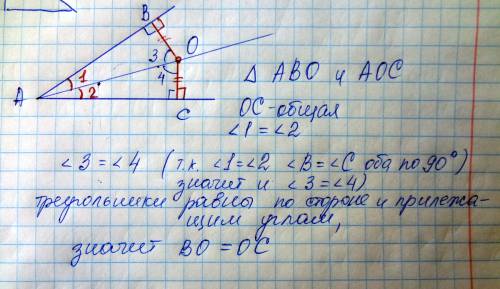 B
O
1
3
2
4
A
C
Δ ABO и AOC
OC-общая
∠1=∠2
∠3=∠4 (т.к. ∠1=∠2 ∠B=∠C оба по 90°)
значит и ∠3=∠4)
треугольники равны по стороне и прилежа-
щим углам,
значит BO=OC